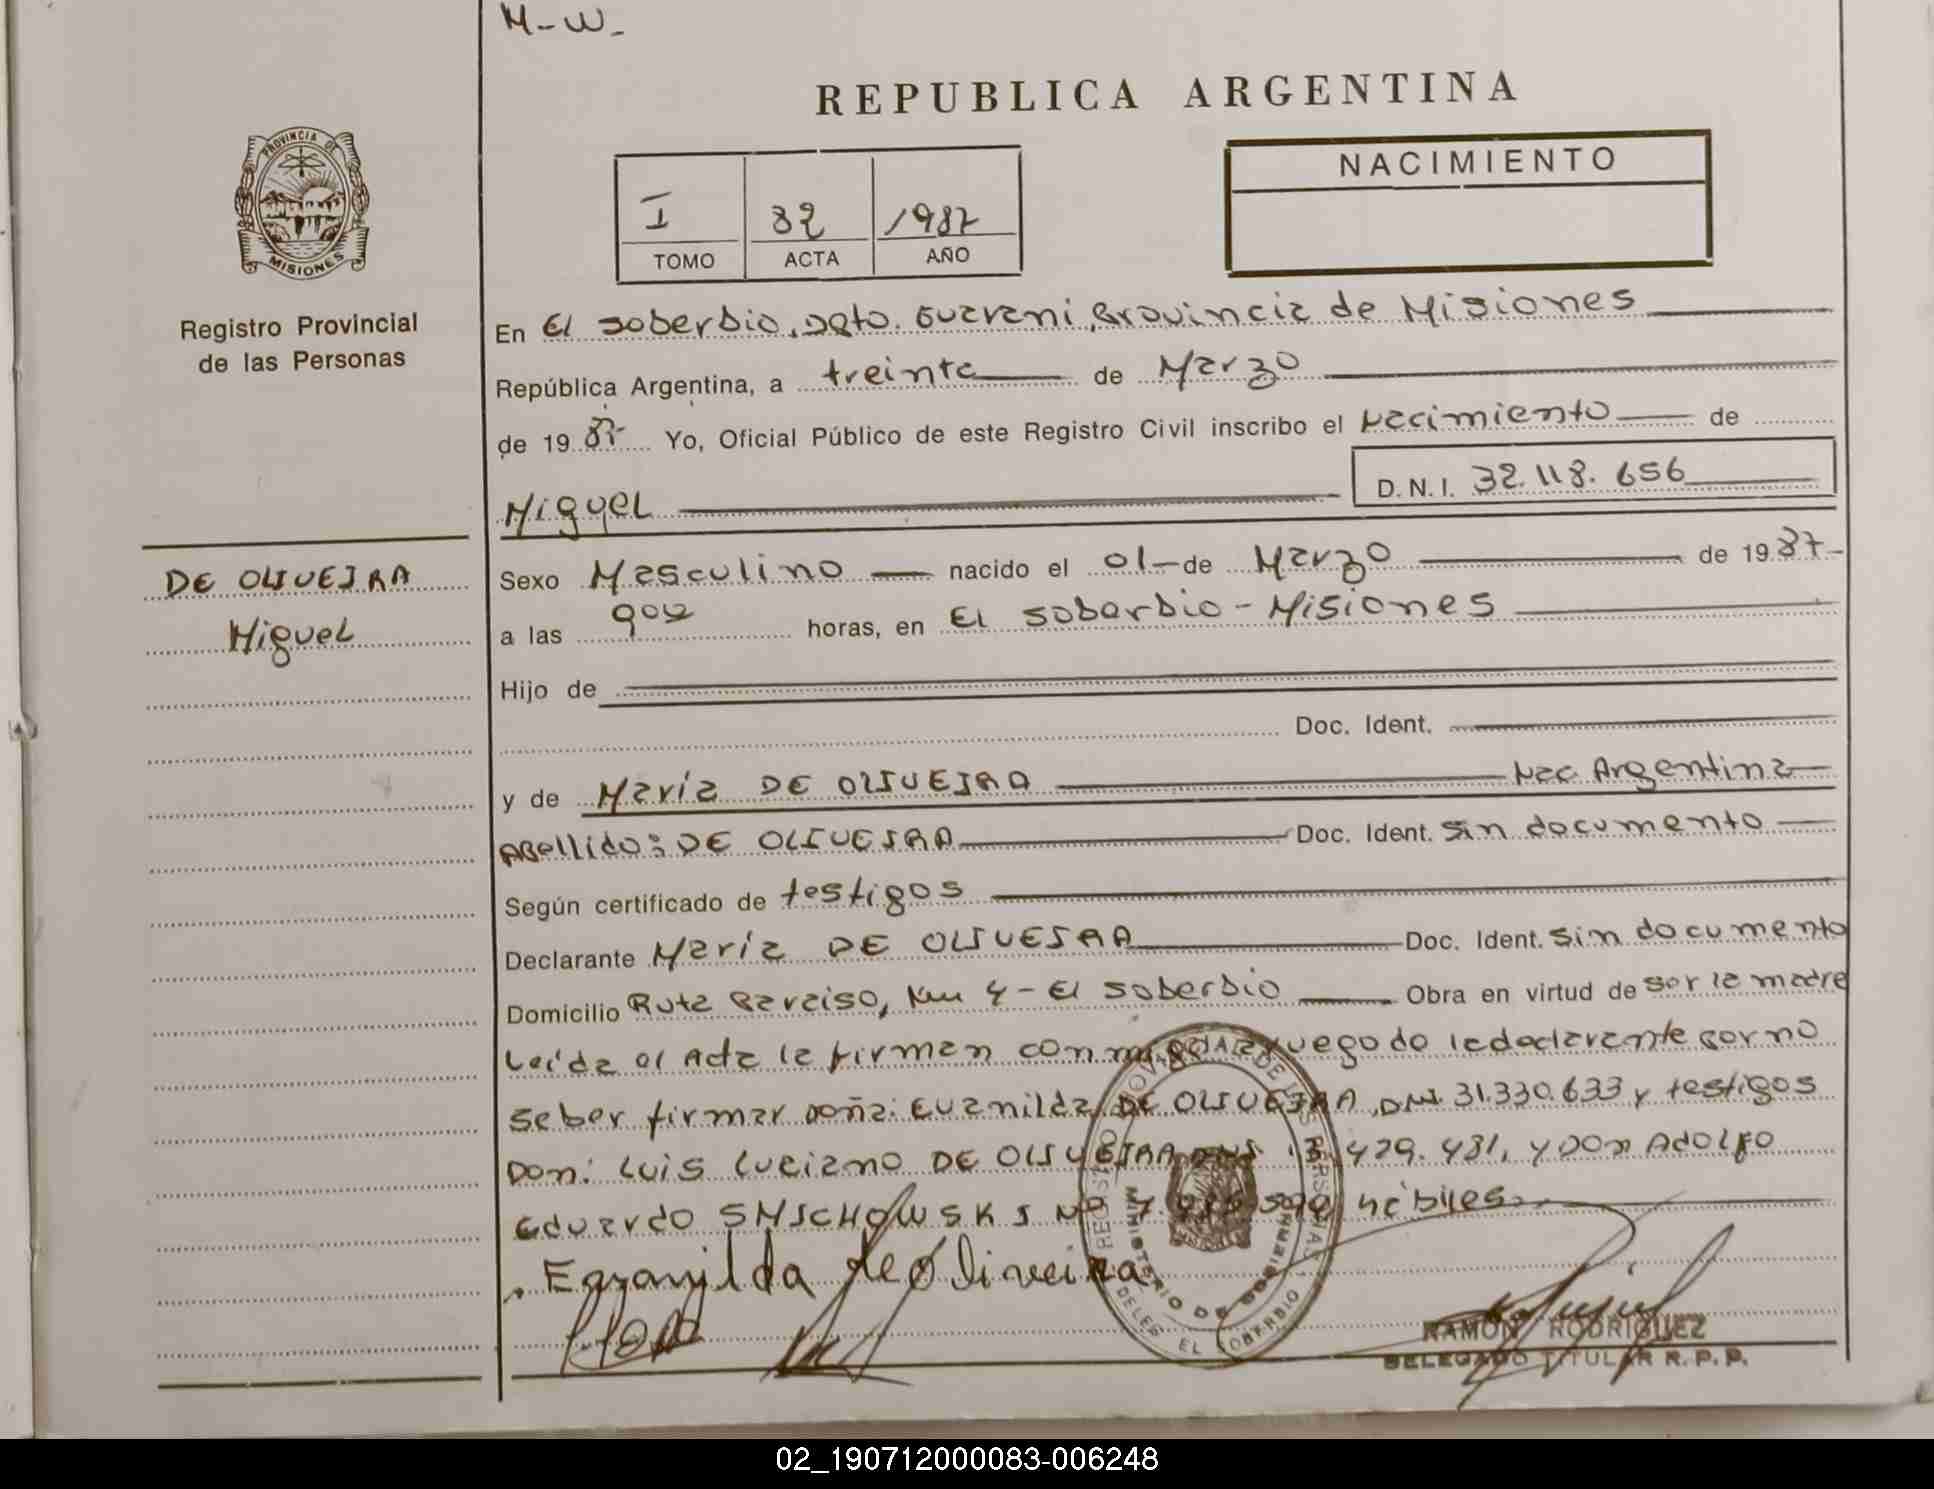 M-W-
REPUBLICA ARGENTINA
PROVINCIA DE
MISIONES
NACIMIENTO
I 32 1987
TOMO ACTA AÑO
Registro Provincial
de las Personas
En El Soberbio, Dpto. Guarani, Provincia de Misiones
República Argentina, a treinta de Marzo
de 19 87 Yo, Oficial Público de este Registro Civil inscribo el Nacimiento de
Miguel D.N.I. 32.118.656
DE OLIVEIRA
Miguel
Sexo Masculino nacido el 01 de Marzo de 19 87
a las horas, en El Soberbio - Misiones
Hijo de
Doc. Ident.
y de María DE OLIVEIRA Nac Argentina
Apellido: DE OLIVEIRA Doc. Ident. Sin documento
Según certificado de testigos
Declarante María DE OLIVEIRA Doc. Ident. Sin documento
Domicilio Ruta Paraiso, Km 4 - El Soberbio Obra en virtud de ser la madre
Leída el Acta la firman conmigo a ruego de la declarante por no
saber firmar doña: Euanilda DE OLIVEIRA, DNI. 31.330.633 y testigos
Don: Luis Luciano DE OLIVEIRA DNI 429.431, y Don Adolfo
Eduardo SMICHOWSKI Nº 7. hábiles
de Oliveira
MINISTERIO DE GOBIERNO
EL SOBERBIO
RAMON RODRIGUEZ
DELEGADO TITULAR R.P.P.
02_190712000083-006248